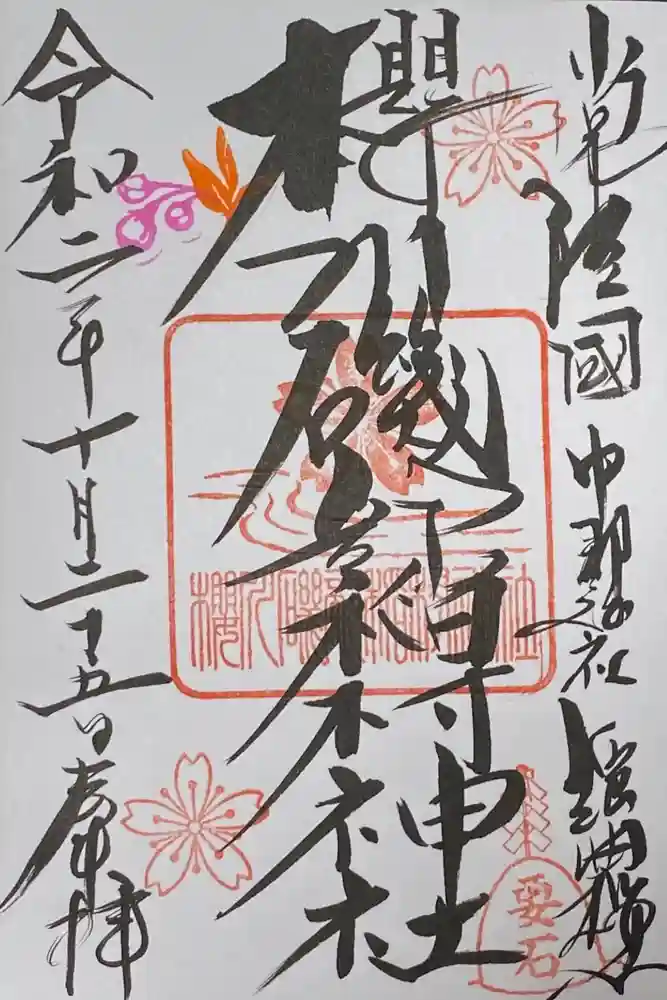 常陸國
櫻川磯部稲村神社
令和二年十月二十五日奉拝
櫻川磯部稲村神社
要石